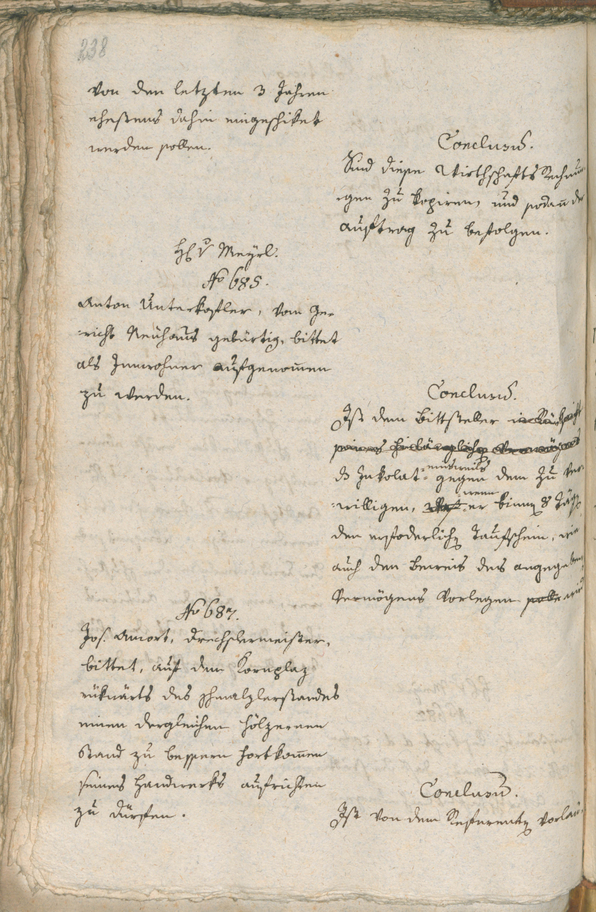 238
von den letzten 3 Jahren
ehestens dahin eingeschiket
werden sollen.
Conclusū.
Sind diese Wirthschafts Rechnun-
gen zu kopiren, und sodañ der
auftrag zu befolgen.
H v Meyrl.
No 685.
Anton Unterkofler, vom Ge-
richt Neuhaus gebürtig, bittet
als Innwohner aufgenommen
zu werden.
Conclusū.
Ist dem Bittsteller in Rücksicht
seines hinlänglichen Vermögens
das Inkolat gegen dem zu ver-
willigen, wenn er binnen 8 Täg
den erforderlichen Taufschein, wie
auch den Beweis des angegebenen
Vermögens vorlegen wird
No 687.
Jos. Amort, Drechslermeister,
bittet, auf dem Kornplaz
rükwärts des Schmalzlerstandes
einen dergleichen hölzernen
Stand zu bessern Fortkommen
seines Handwerks aufrichten
zu dürfen.
Conclusū.
Ist von dem Referenten vorläu-